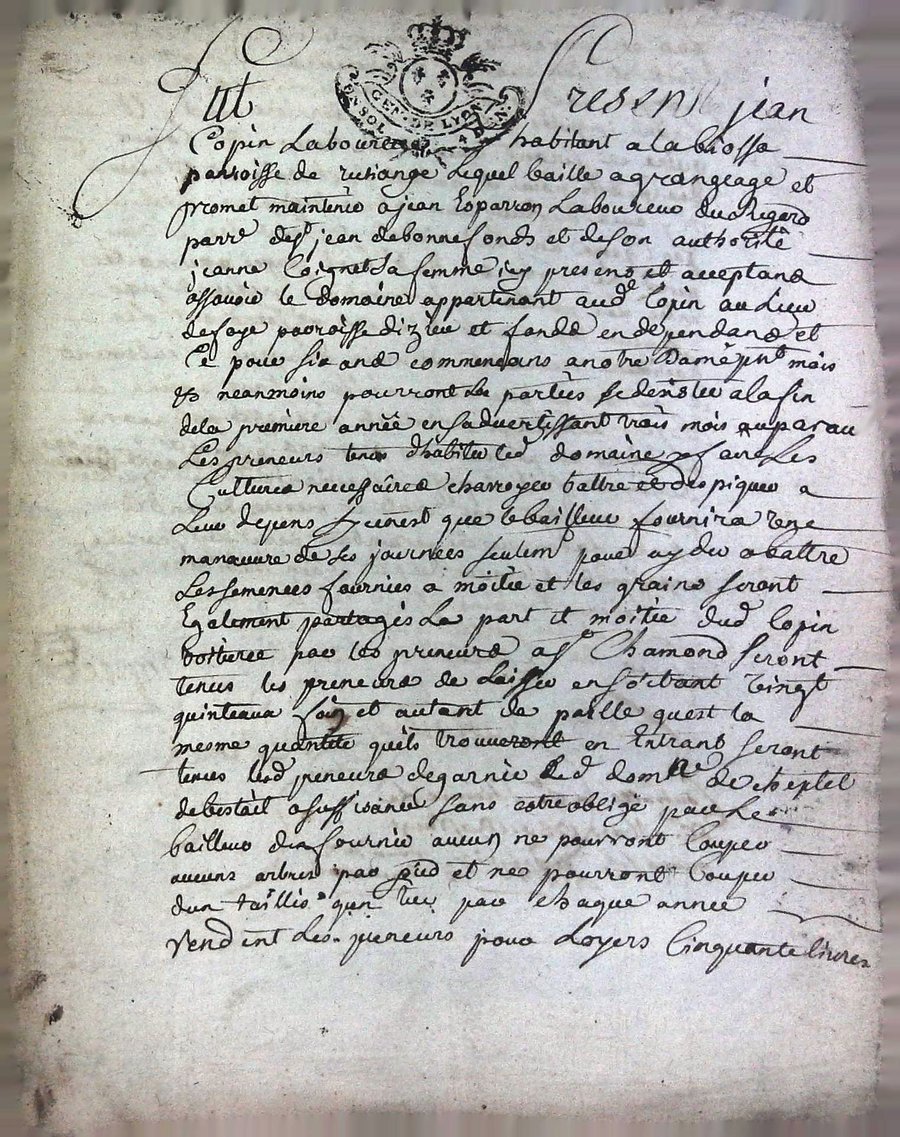 GEN. DE LYON
UN SOL 4 DEN.
Fut Present jean
Copin Laboureur habitant a la brossa
parroisse de rusiange Lequel baille a grangeage et
promet maintenir a jean Loparron Laboureur du
parr^e de s^t jean de bonnefonds et de son authorité
jeanne Coignet sa femme icy present et acceptand
assavoir le domaine appartenant aud^t Copin au Lieu
de faye parroisse dizieu et fondd en dependand et
Ce pour six and commencans a notre Dame p^nt mois
et neanmoins pourront Les parties se desister a la fin
de la premiere année en sadvertissant trois mois auparau
Les preneurs tenus dhabiter led^t domaine y faire Les
Cultures necessaires charroyer battre et depiquer a
Leur depens si cenest que le bailleur fournira
manœuvre de ses journees seulem^t pour ayder a battre
Les semences fournies a moitie et les grains seront
Egalement partagés La part et moitie dud^t Copin
voituree par les preneurs a s^t Chamond seront
tenus les preneurs de Laisser en sortant vingt
quinteaux foin et autant de paille quest la
mesme quantite quils trouveront en Entrant seront
tenus lesd^t preneurs de garnir Led^t dom^ne de cheptel
de bestail a suffisance sans estre obligé par Le
bailleur den fournir aucun ne pourront Couper
aucuns arbres par pied et ne pourront Couper
dun taillis quen par chaque annee
Rendent Les preneurs pour Loyers Cinquante livres